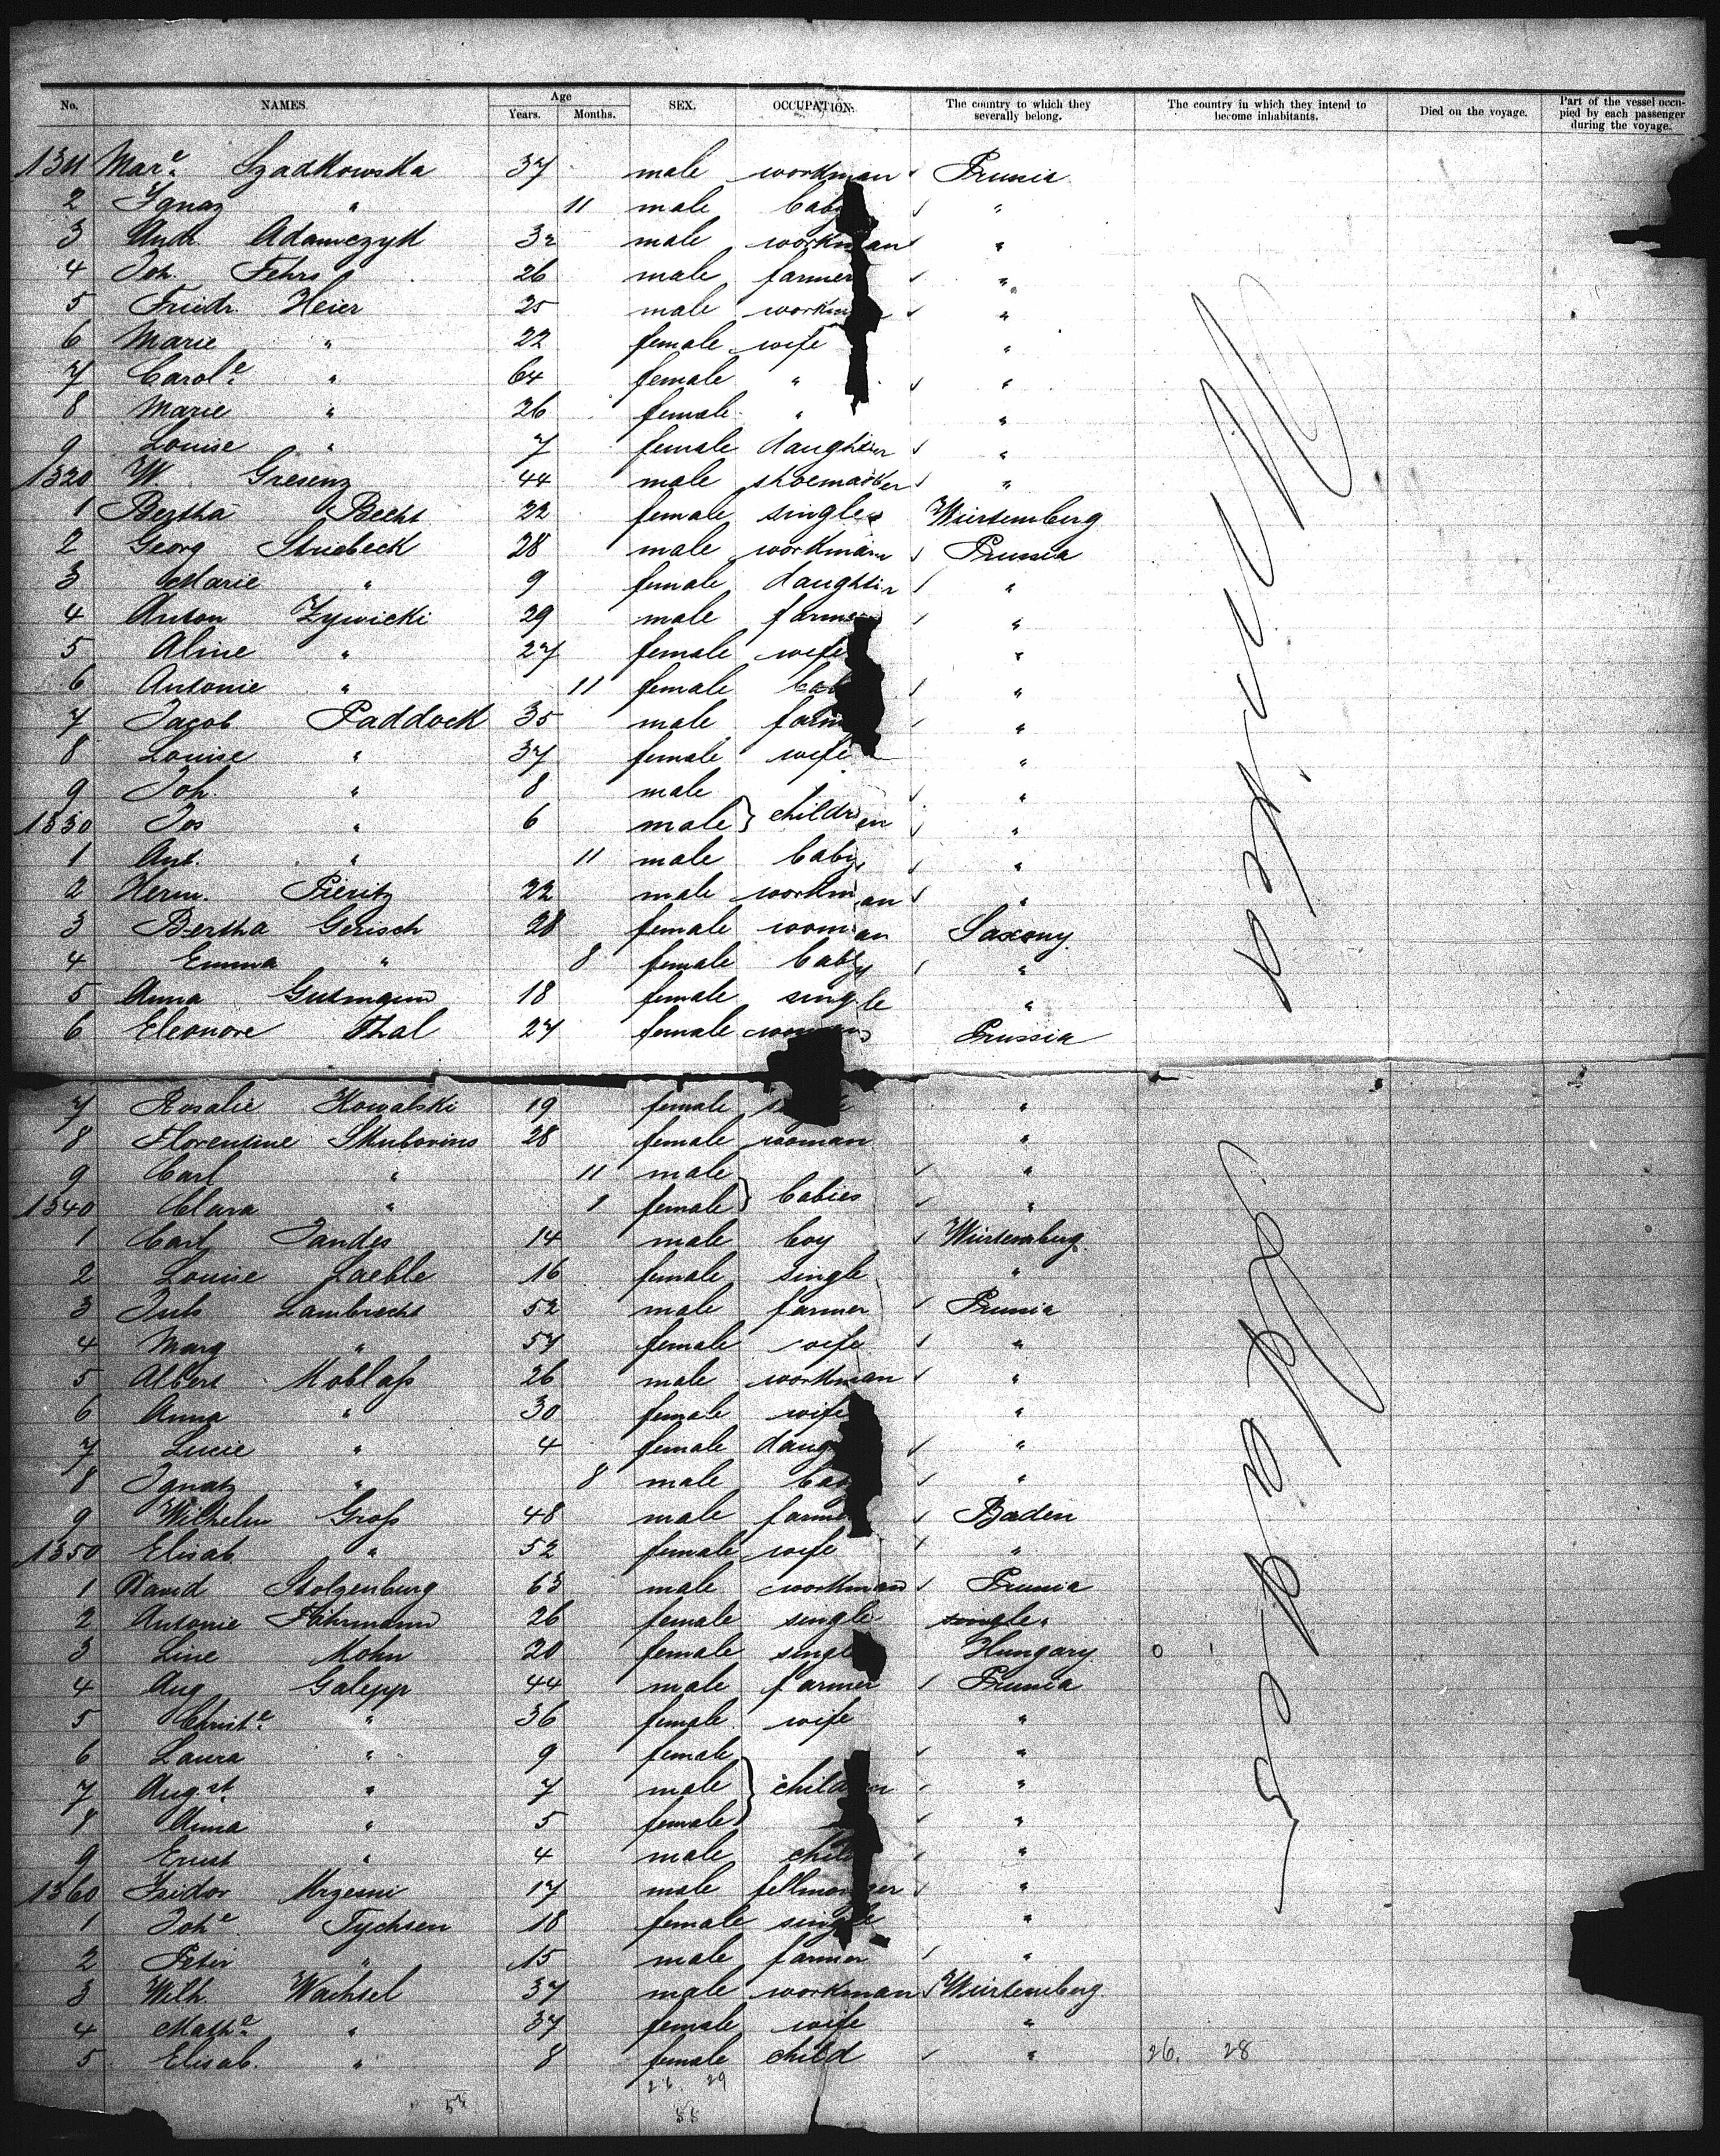 No. NAMES. Age Years. Months. SEX. OCCUPATION. The country to which they severally belong. The country in which they intend to become inhabitants. Died on the voyage. Part of the vessel occupied by each passenger during the voyage.
1311 Mare. Szadkowska 37 male workman Prussia
2 Ignaz " 11 male baby "
3 Andr. Adamczyk 32 male workman "
4 Joh. Fehrs 26 male farmer "
5 Friedr. Heier 25 male workm "
6 Marie " 22 female wife "
7 Carole. " 64 female " "
8 Marie " 26 female " "
9 Louise " 7 female daughter "
1320 W. Gresenz 44 male shoemaker "
1 Bertha Becht 22 female single Würtemberg
2 Georg Striebeck 28 male workman Prussia
3 Marie " 9 female daughter "
4 Anton Zywicki 29 male farmer "
5 Aline " 27 female wife "
6 Antonie " 11 female bab "
7 Jacob Paddock 35 male farm "
8 Louise " 37 female wife "
9 Joh. " 8 male "
1330 Jos " 6 male } children "
1 Ant. " 11 male baby "
2 Herm. Pieritz 22 male workman "
3 Bertha Gerisch 28 female woman Saxony.
4 Emma " 8 female baby "
5 Anna Gutmann 18 female single "
6 Eleonore Thal 27 female woman Prussia
7 Rosalie Kowalski 19 female s "
8 Florentine Skubovius 28 female woman "
9 Carl " 11 male "
1340 Clara " 1 female } babies "
1 Carl Jandes 14 male boy Würtemberg.
2 Louise Laeble 16 female single "
3 Juls Lambrecht 52 male farmer Prussia
4 Marg " 57 female wife "
5 Albert Koblass 26 male workman "
6 Anna " 30 female wife "
7 Lucie " 4 female daug "
8 Ignatz " 8 male bab "
9 Wilhelm Gross 48 male farmer Baden
1350 Elisab " 52 female wife "
1 David Stolzenburg 63 male workman Prussia
2 Antonie Führmann 26 female single single "
3 Line Mohn 20 female single Hungary. 0 1
4 Aug Galepp 44 male farmer Prussia
5 Christe. " 36 female wife "
6 Laura " 9 female "
7 Augst. " 7 male } children "
8 Anna " 5 female "
9 Ernst " 4 male child "
1360 Isidor Mrzesni 17 male fellmonger "
1 Johe. Tychsen 18 female single "
2 Peter " 15 male farmer "
3 Wilh. Wachsel 37 male workman Würtemberg
4 Mathe. " 37 female wife "
5 Elisab. " 8 female child " 26. 28
26. 29
55